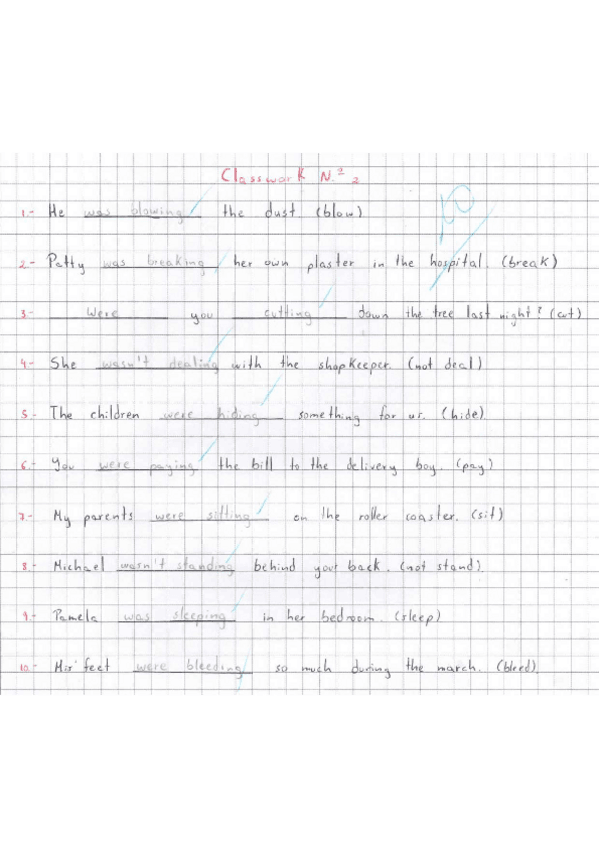 Classwork N.º 2
1.- He was blowing the dust. (blow)
2.- Patty was breaking her own plaster in the hospital. (break)
3.- Were you cutting down the tree last night? (cut)
4.- She wasn't dealing with the shopkeeper. (not deal)
5.- The children were hiding something for us. (hide)
6.- You were paying the bill to the delivery boy. (pay)
7.- My parents were sitting on the roller coaster. (sit)
8.- Michael wasn't standing behind your back. (not stand).
9.- Pamela was sleeping in her bedroom. (sleep)
10.- feet were bleeding so much during the march. (bleed).